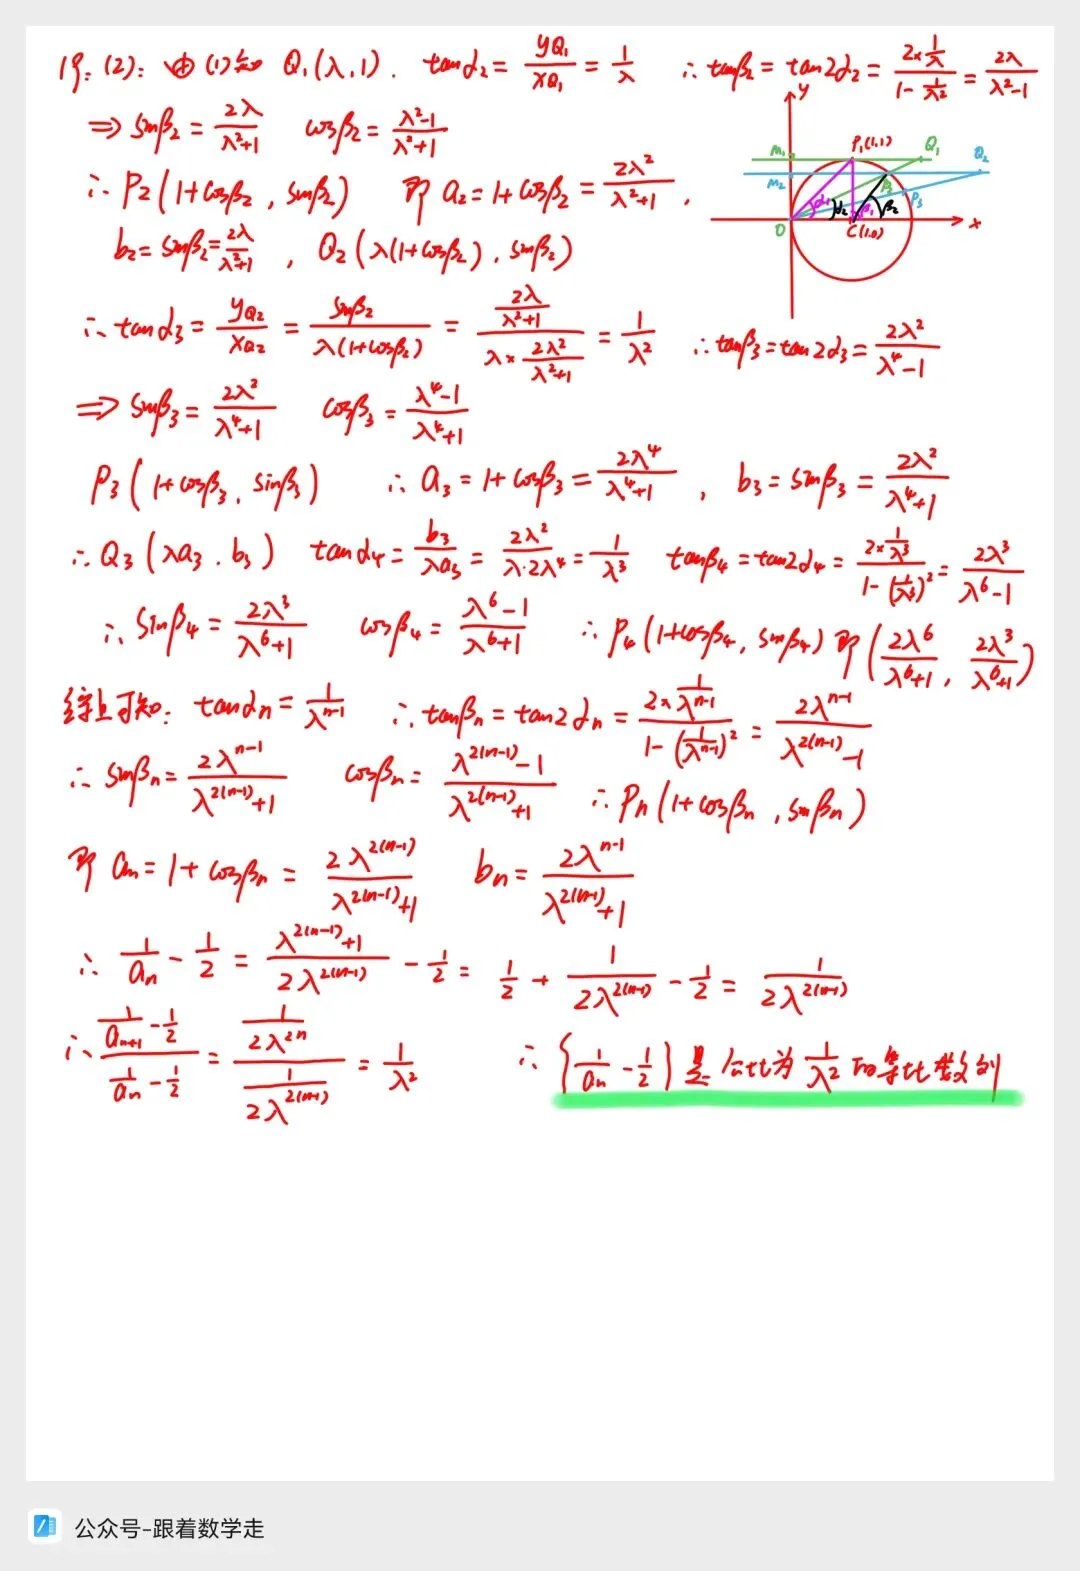 19: (2): 由(1)知 Q₁(λ, 1). tanα₂ = y_Q₁/x_Q₁ = 1/λ ∴ tanβ₂ = tan2α₂ = (2×1/λ)/(1 - 1/λ²) = 2λ/(λ²-1)
⇒ sinβ₂ = 2λ/(λ²+1) cosβ₂ = (λ²-1)/(λ²+1)
∴ P₂(1+cosβ₂, sinβ₂) 即 a₂ = 1+cosβ₂ = 2λ²/(λ²+1),
b₂ = sinβ₂ = 2λ/(λ²+1), Q₂(λ(1+cosβ₂), sinβ₂)
y
M₁ P₁(1,1) Q₁
M₂ Q₂
P₂ P₃
α₂ β₁ β₂
O C(1,0) x
∴ tanα₃ = y_Q₂/x_Q₂ = sinβ₂/(λ(1+cosβ₂)) = (2λ/(λ²+1))/(λ×2λ²/(λ²+1)) = 1/λ² ∴ tanβ₃ = tan2α₃ = 2λ²/(λ⁴-1)
⇒ sinβ₃ = 2λ²/(λ⁴+1) cosβ₃ = (λ⁴-1)/(λ⁴+1)
P₃(1+cosβ₃, sinβ₃) ∴ a₃ = 1+cosβ₃ = 2λ⁴/(λ⁴+1), b₃ = sinβ₃ = 2λ²/(λ⁴+1)
∴ Q₃(λa₃, b₃) tanα₄ = b₃/(λa₃) = 2λ²/(λ·2λ⁴) = 1/λ³ tanβ₄ = tan2α₄ = (2×1/λ³)/(1-(1/λ³)²) = 2λ³/(λ⁶-1)
∴ sinβ₄ = 2λ³/(λ⁶+1) cosβ₄ = (λ⁶-1)/(λ⁶+1) ∴ P₄(1+cosβ₄, sinβ₄) 即(2λ⁶/(λ⁶+1), 2λ³/(λ⁶+1))
综上可知: tanαn = 1/λ^(n-1) ∴ tanβn = tan2αn = (2×1/λ^(n-1))/(1-(1/λ^(n-1))²) = 2λ^(n-1)/(λ^(2(n-1))-1)
∴ sinβn = 2λ^(n-1)/(λ^(2(n-1))+1) cosβn = (λ^(2(n-1))-1)/(λ^(2(n-1))+1) ∴ Pn(1+cosβn, sinβn)
即 an = 1+cosβn = 2λ^(2(n-1))/(λ^(2(n-1))+1) bn = 2λ^(n-1)/(λ^(2(n-1))+1)
∴ 1/an - 1/2 = (λ^(2(n-1))+1)/(2λ^(2(n-1))) - 1/2 = 1/2 + 1/(2λ^(2(n-1))) - 1/2 = 1/(2λ^(2(n-1)))
∴ (1/a_(n+1) - 1/2)/(1/an - 1/2) = (1/(2λ^(2n)))/(1/(2λ^(2(n-1)))) = 1/λ² ∴ {1/an - 1/2} 是公比为 1/λ² 的等比数列
公众号-跟着数学走